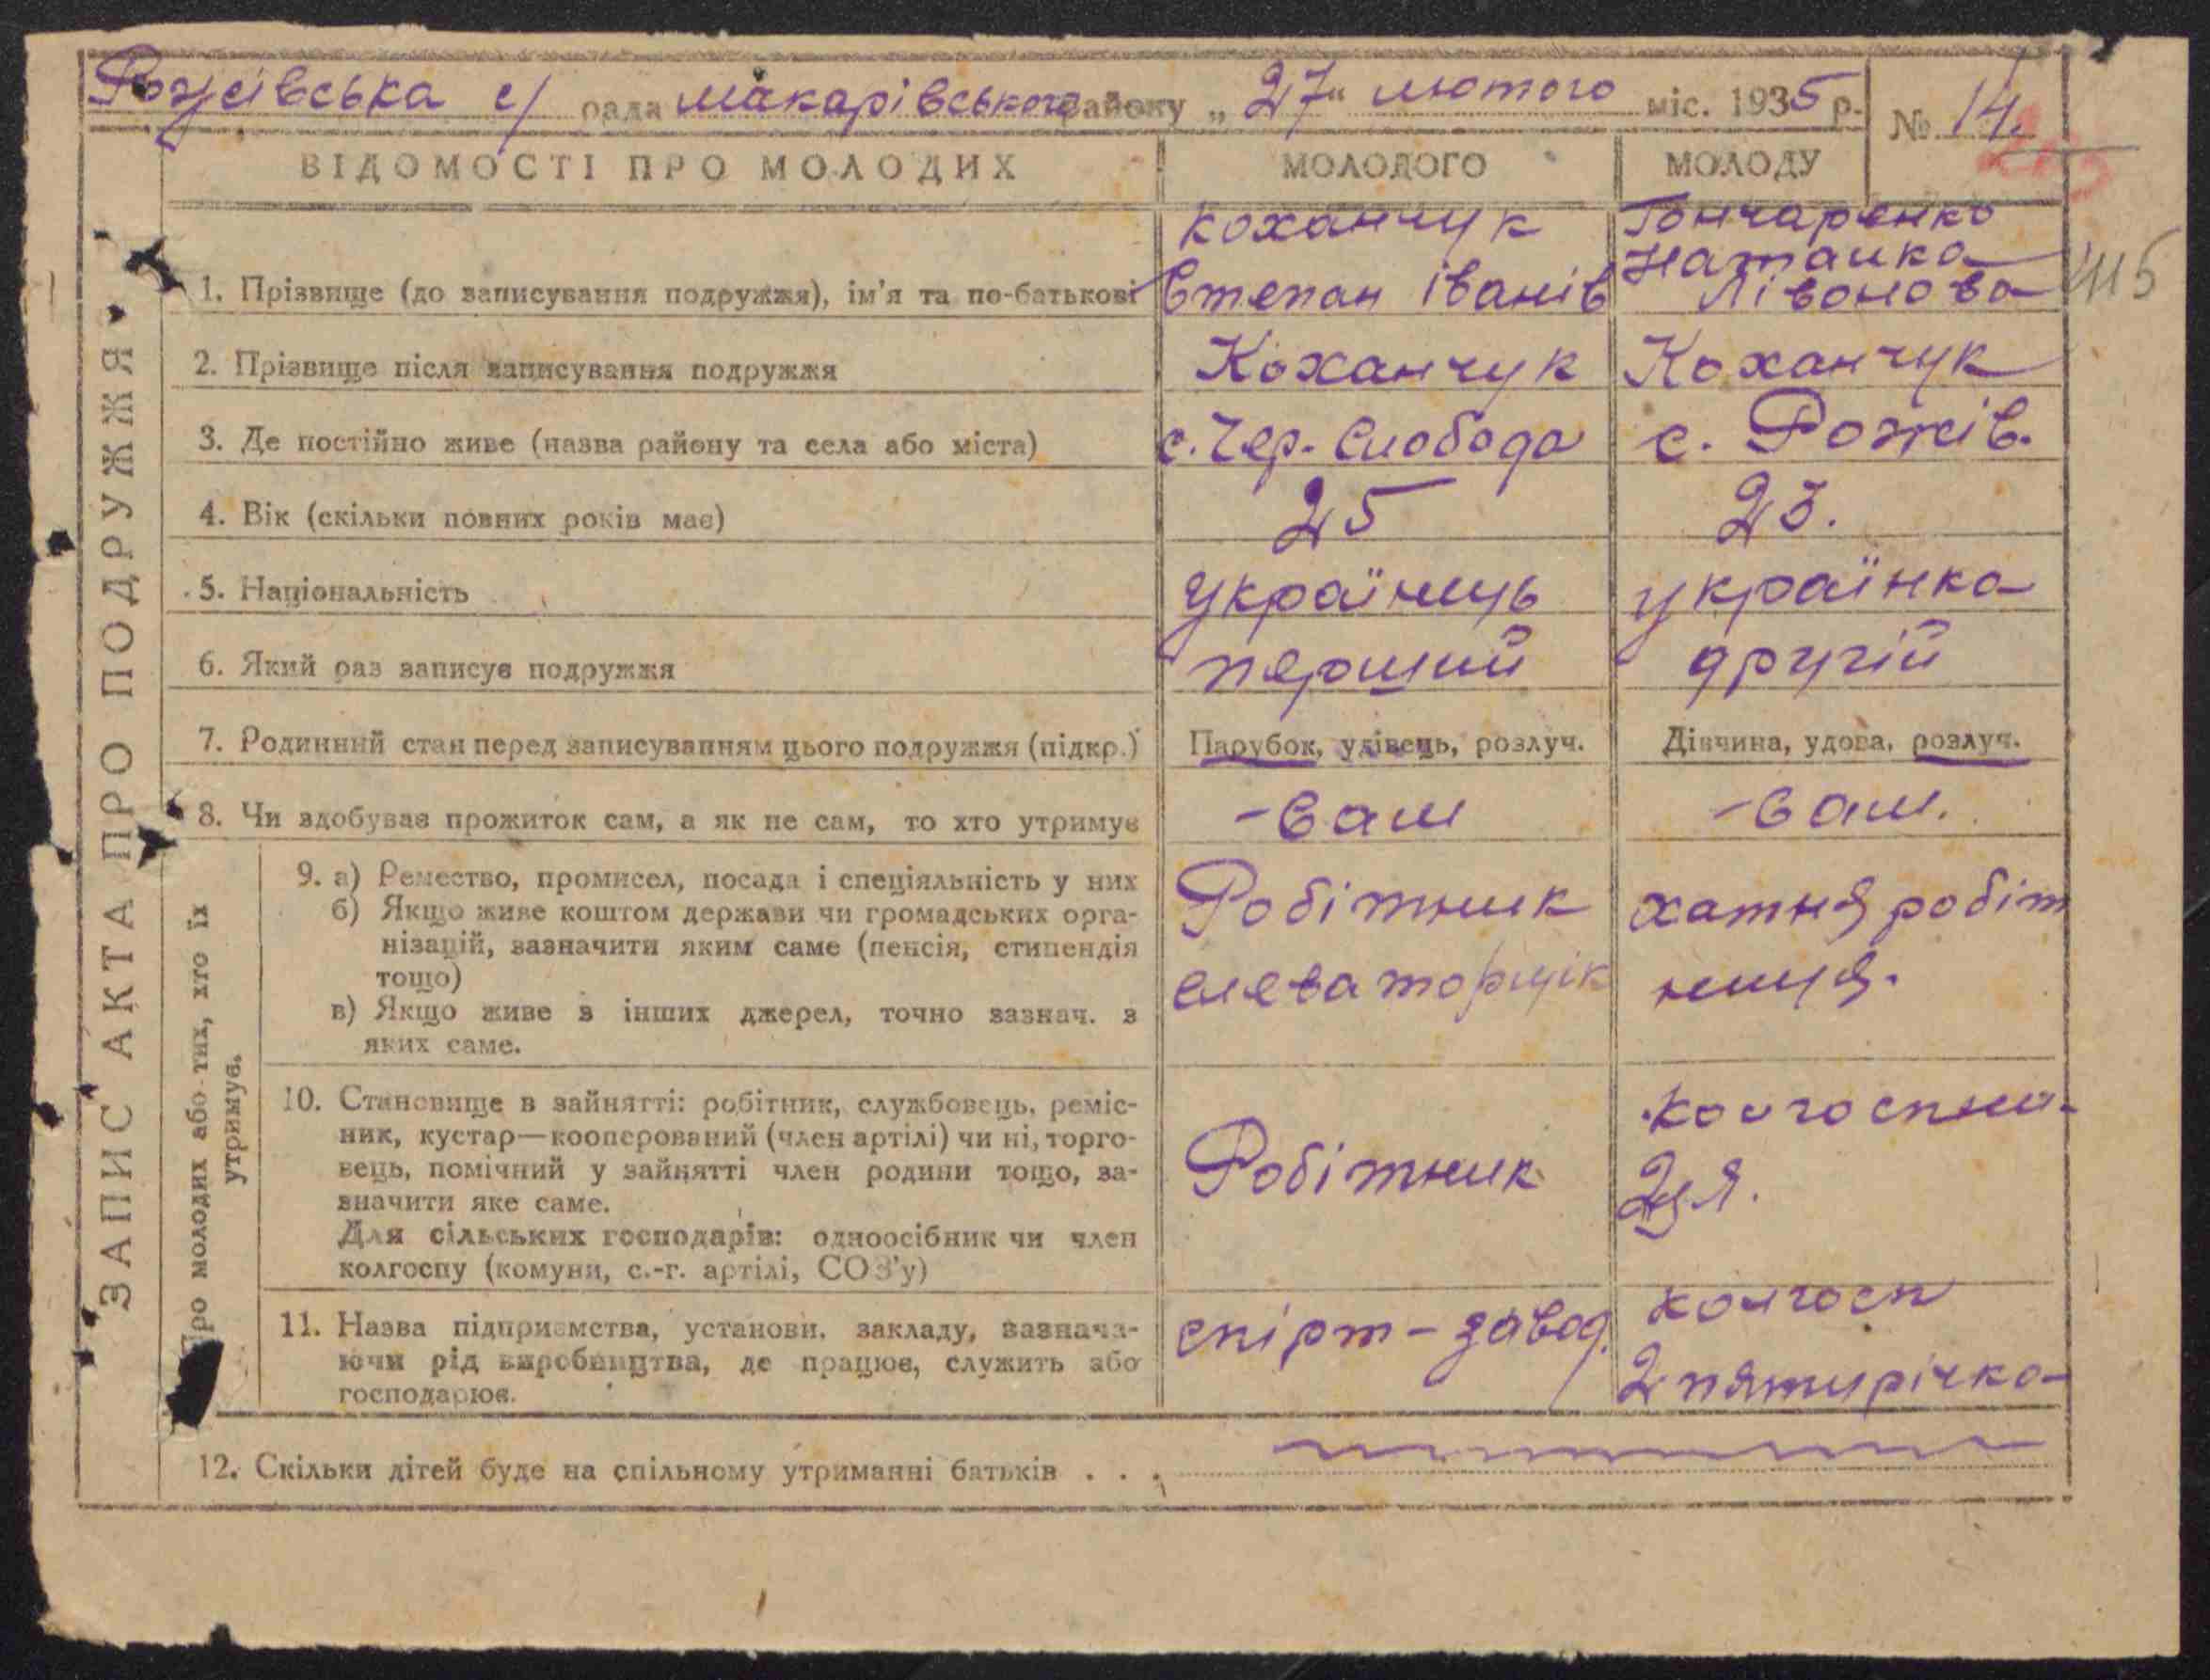 Рожівська с/ рада Макарівського району „27“ лютого міс. 1935 р. № 14.
ВІДОМОСТІ ПРО МОЛОДИХ МОЛОДОГО МОЛОДУ
1. Прізвище (до записування подружжя), ім'я та по-батькові Коханчук Степан Іванів Гончаренко Наталка Лівонова
415
2. Прізвище після записування подружжя Коханчук Коханчук
3. Де постійно живе (назва району та села або міста) с. Чер. Слобода с. Рожів.
4. Вік (скільки повних років має) 25 23.
5. Національність українець українка
6. Який раз записує подружжя перший другій
7. Родинний стан перед записуванням цього подружжя (підкр.) Парубок, удівець, розлуч. Дівчина, удова, розлуч.
8. Чи здобуває прожиток сам, а як не сам, то хто утримує - Сам - Сам.
ЗАПИС АКТА ПРО ПОДРУЖЖЯ
Про молодих або тих, хто їх
утримує.
9. а) Ремество, промисел, посада і спеціяльність у них
б) Якщо живе коштом держави чи громадських орга-
нізацій, зазначити яким саме (пенсія, стипендія
тощо)
в) Якщо живе з інших джерел, точно зазнач. з
яких саме.
Робітник
елеваторщік
хатня робіт
ниця.
10. Становище в зайнятті: робітник, службовець, реміс-
ник, кустар—кооперований (член артілі) чи ні, торго-
вець, помічний у зайнятті член родини тощо, за-
значити яке саме.
Для сільських господарів: одноосібник чи член
колгоспу (комуни, с.-г. артілі, СОЗ'у)
Робітник
колгоспни-
ця.
11. Назва підприємства, установи, закладу, зазнача-
ючи рід виробництва, де працює, служить або
господарює.
спірт-завод.
колгосп
2 пятирічка
12. Скільки дітей буде на спільному утриманні батьків . . .